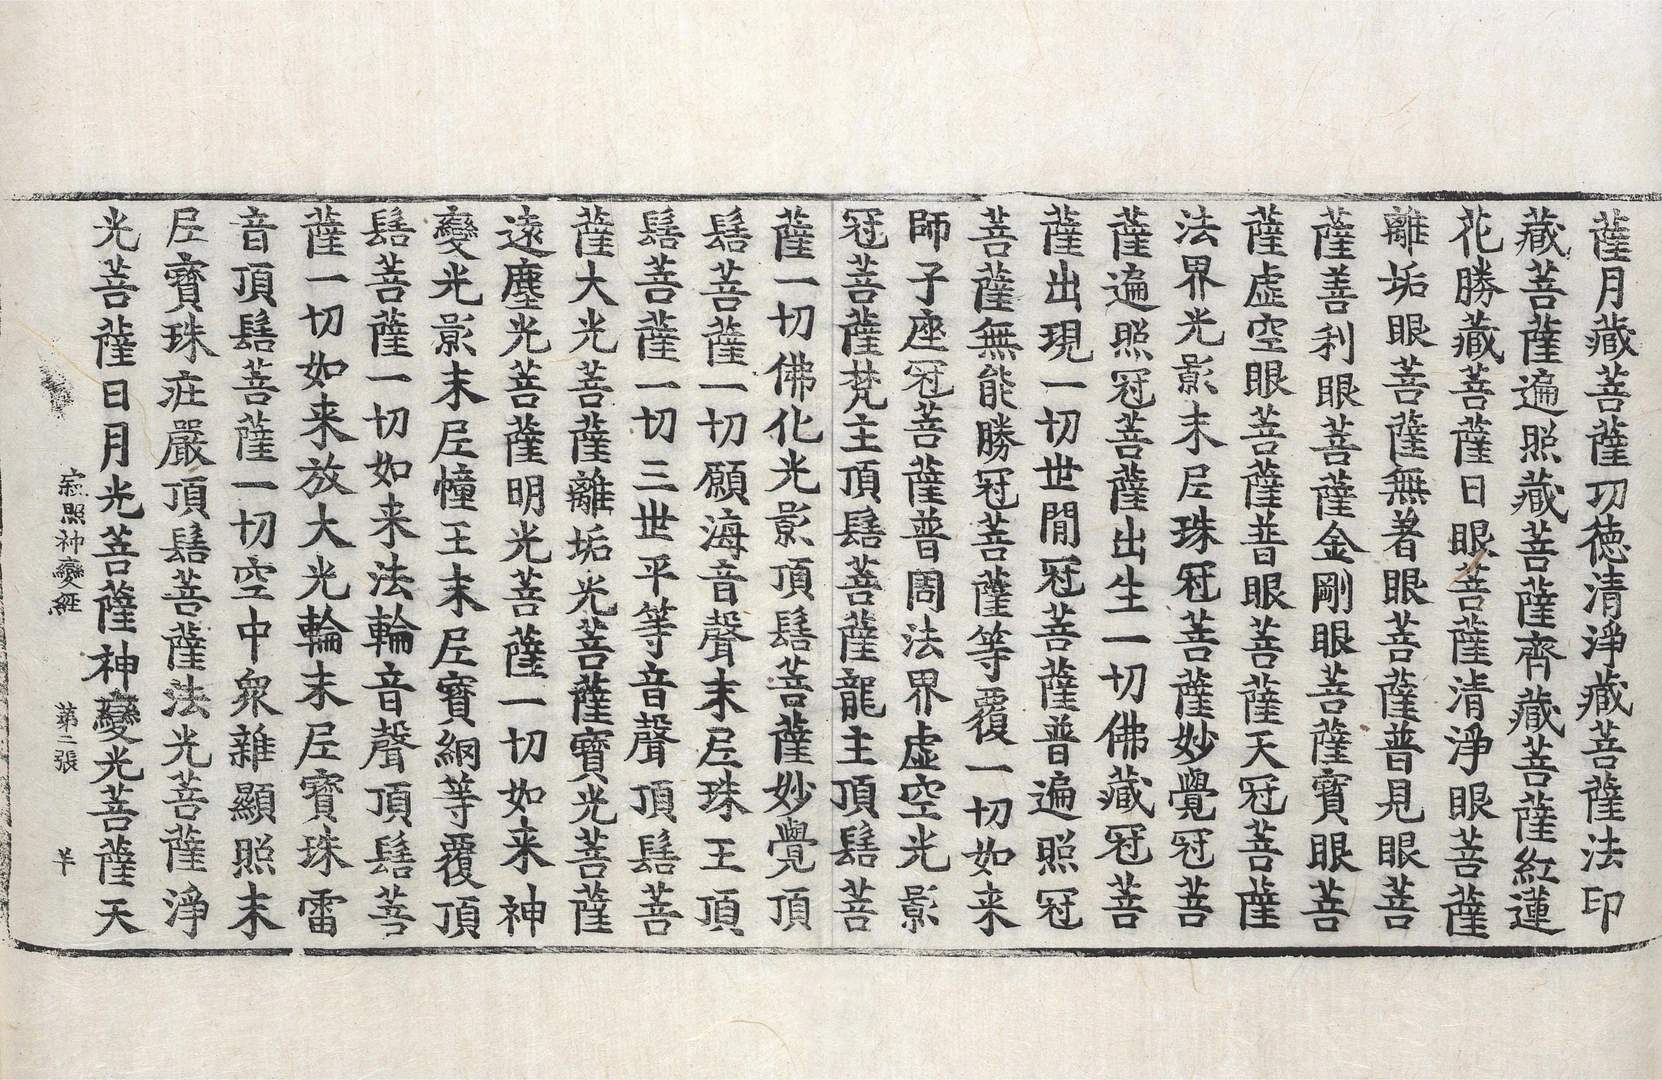 薩月藏菩薩功德清淨藏菩薩法印
藏菩薩遍照藏菩薩齊藏菩薩紅蓮
花勝藏菩薩日眼菩薩清淨眼菩薩
離垢眼菩薩無著眼菩薩普見眼菩
薩善利眼菩薩金剛眼菩薩寶眼菩
薩虛空眼菩薩普眼菩薩天冠菩薩
法界光影末尼珠冠菩薩妙覺冠菩
薩遍照冠菩薩出生一切佛藏冠菩
薩出現一切世閒冠菩薩普遍照冠
菩薩無能勝冠菩薩等覆一切如来
師子座冠菩薩普周法界虛空光影
冠菩薩梵主頂髻菩薩龍主頂髻菩
薩一切佛化光影頂髻菩薩妙覺頂
髻菩薩一切願海音聲末尼珠王頂
髻菩薩一切三世平等音聲頂髻菩
薩大光菩薩離垢光菩薩寶光菩薩
遠塵光菩薩明光菩薩一切如来神
變光影末尼幢王末尼寶網等覆頂
髻菩薩一切如来法輪音聲頂髻菩
薩一切如来放大光輪末尼寶珠雷
音頂髻菩薩一切空中衆雜顯照末
尼寶珠莊嚴頂髻菩薩法光菩薩淨
光菩薩日月光菩薩神變光菩薩天
寂照神變經 第二張 羊